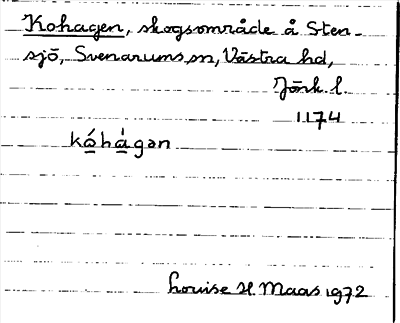 Kohagen, skogsområde å Sten-
sjö, Svenarums sn, Västra hd,
Jönk. l.
1174
kóhàgən
Louise H. Maas 1972